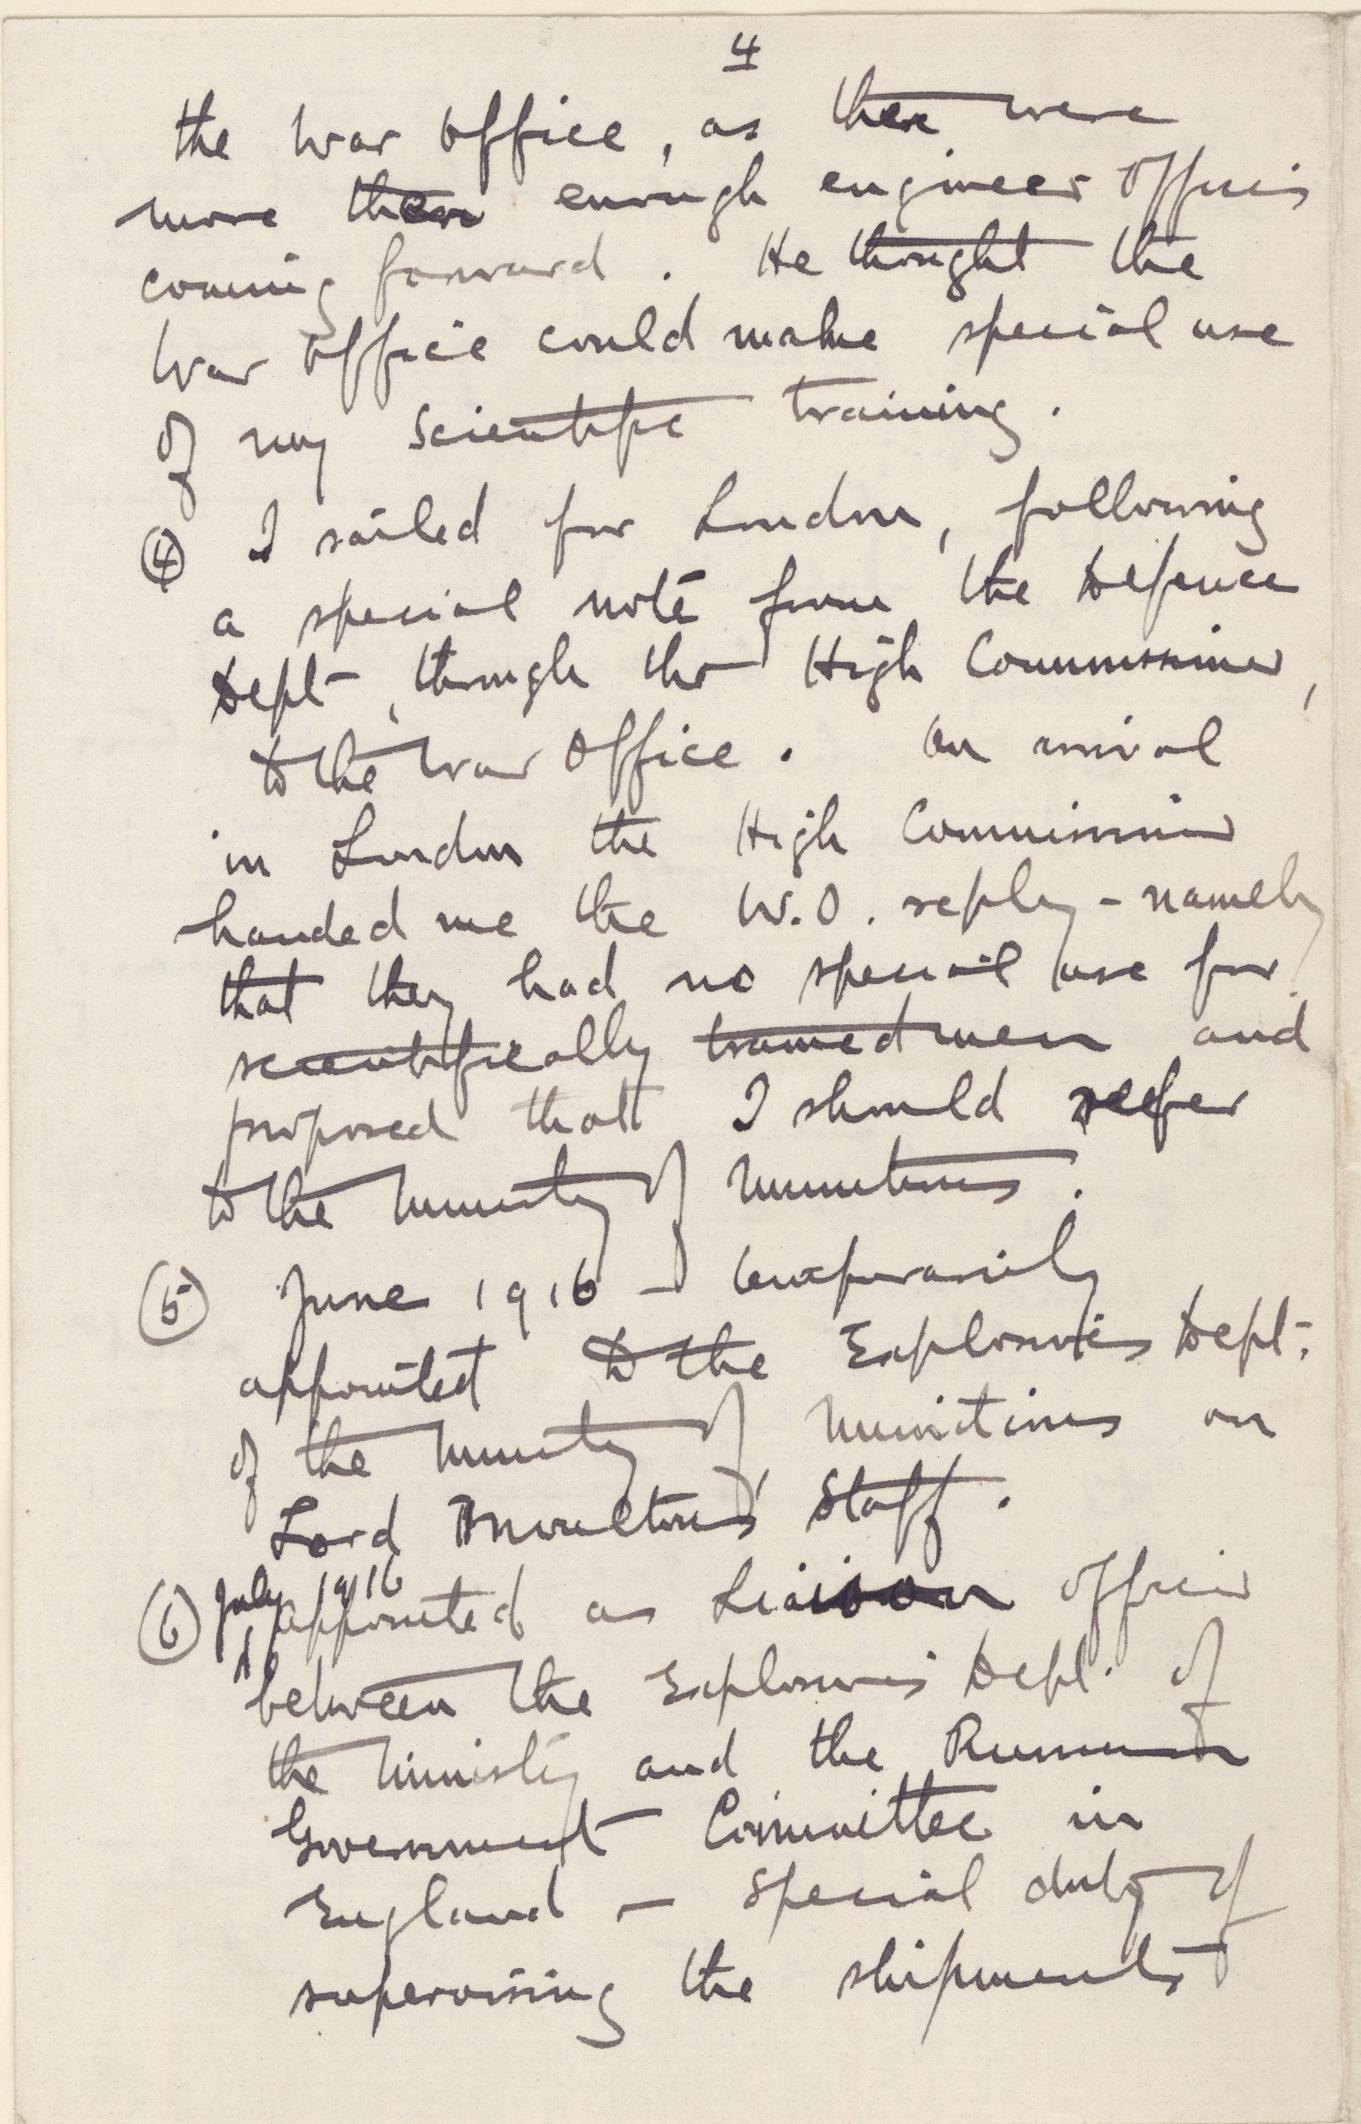 4
the War Office, as there were
more than enough engineer officers
coming forward. He thought the
War Office could make special use
of my scientific training.
(4) I sailed for London, following
a special note from the Defence
Dept, through the High Commissioner,
to the War Office. On arrival
in London the High Commissioner
handed me the W.O. reply - namely
that they had no special use for
scientifically trained men and
proposed that I should refer
to the Ministry of Munitions.
(5) June 1916 - temporarily
appointed to the Explosives Dept.
of the Ministry of Munitions on
Lord Moulton's Staff.
July 1916
(6) appointed as Liaison officer
between the Explosives Dept. of
the Ministry and the Russian
Government Committee in
England - special duty of
supervising the shipments